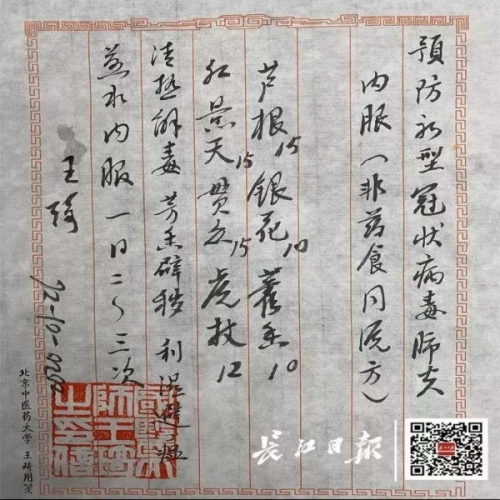 预防新型冠状病毒肺炎
内服（非药食同源方）
芦根15 银花10 藿香10
红景天15 贯众15 虎杖12
清热解毒 芳香辟秽 利湿避瘟
煎水内服 一日二~三次
王琦
北京中医药大学 王琦用笺
长江日报